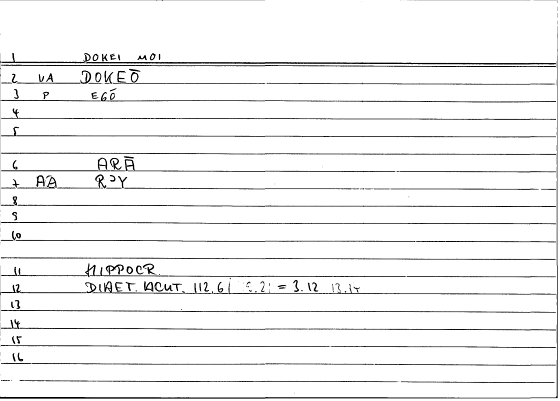 1 DOKEI MOI
2 VA DOKEŌ
3 P EGŌ
4
5
6 ARĀ
7 AA RʾY
8
9
10
11 HIPPOCR.
12 DIAET. ACUT. 112.6 = 3.12 13.14
13
14
15
16